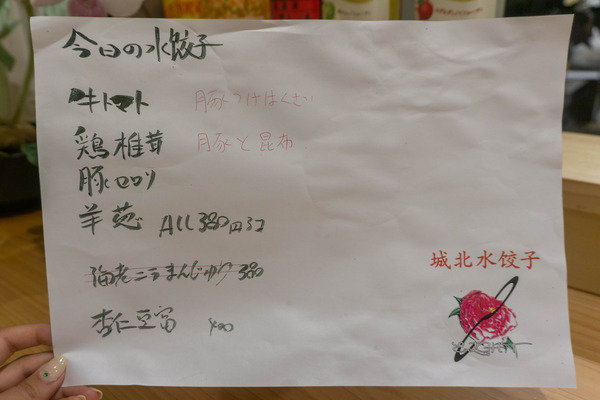 今日の水餃子
牛トマト
豚つけはくさい
鶏椎茸
豚と昆布
豚ロロソ
羊葱
ALL 380円 5コ
海老ニラまんじゅう 380
杏仁豆富 ¥400
城北水餃子